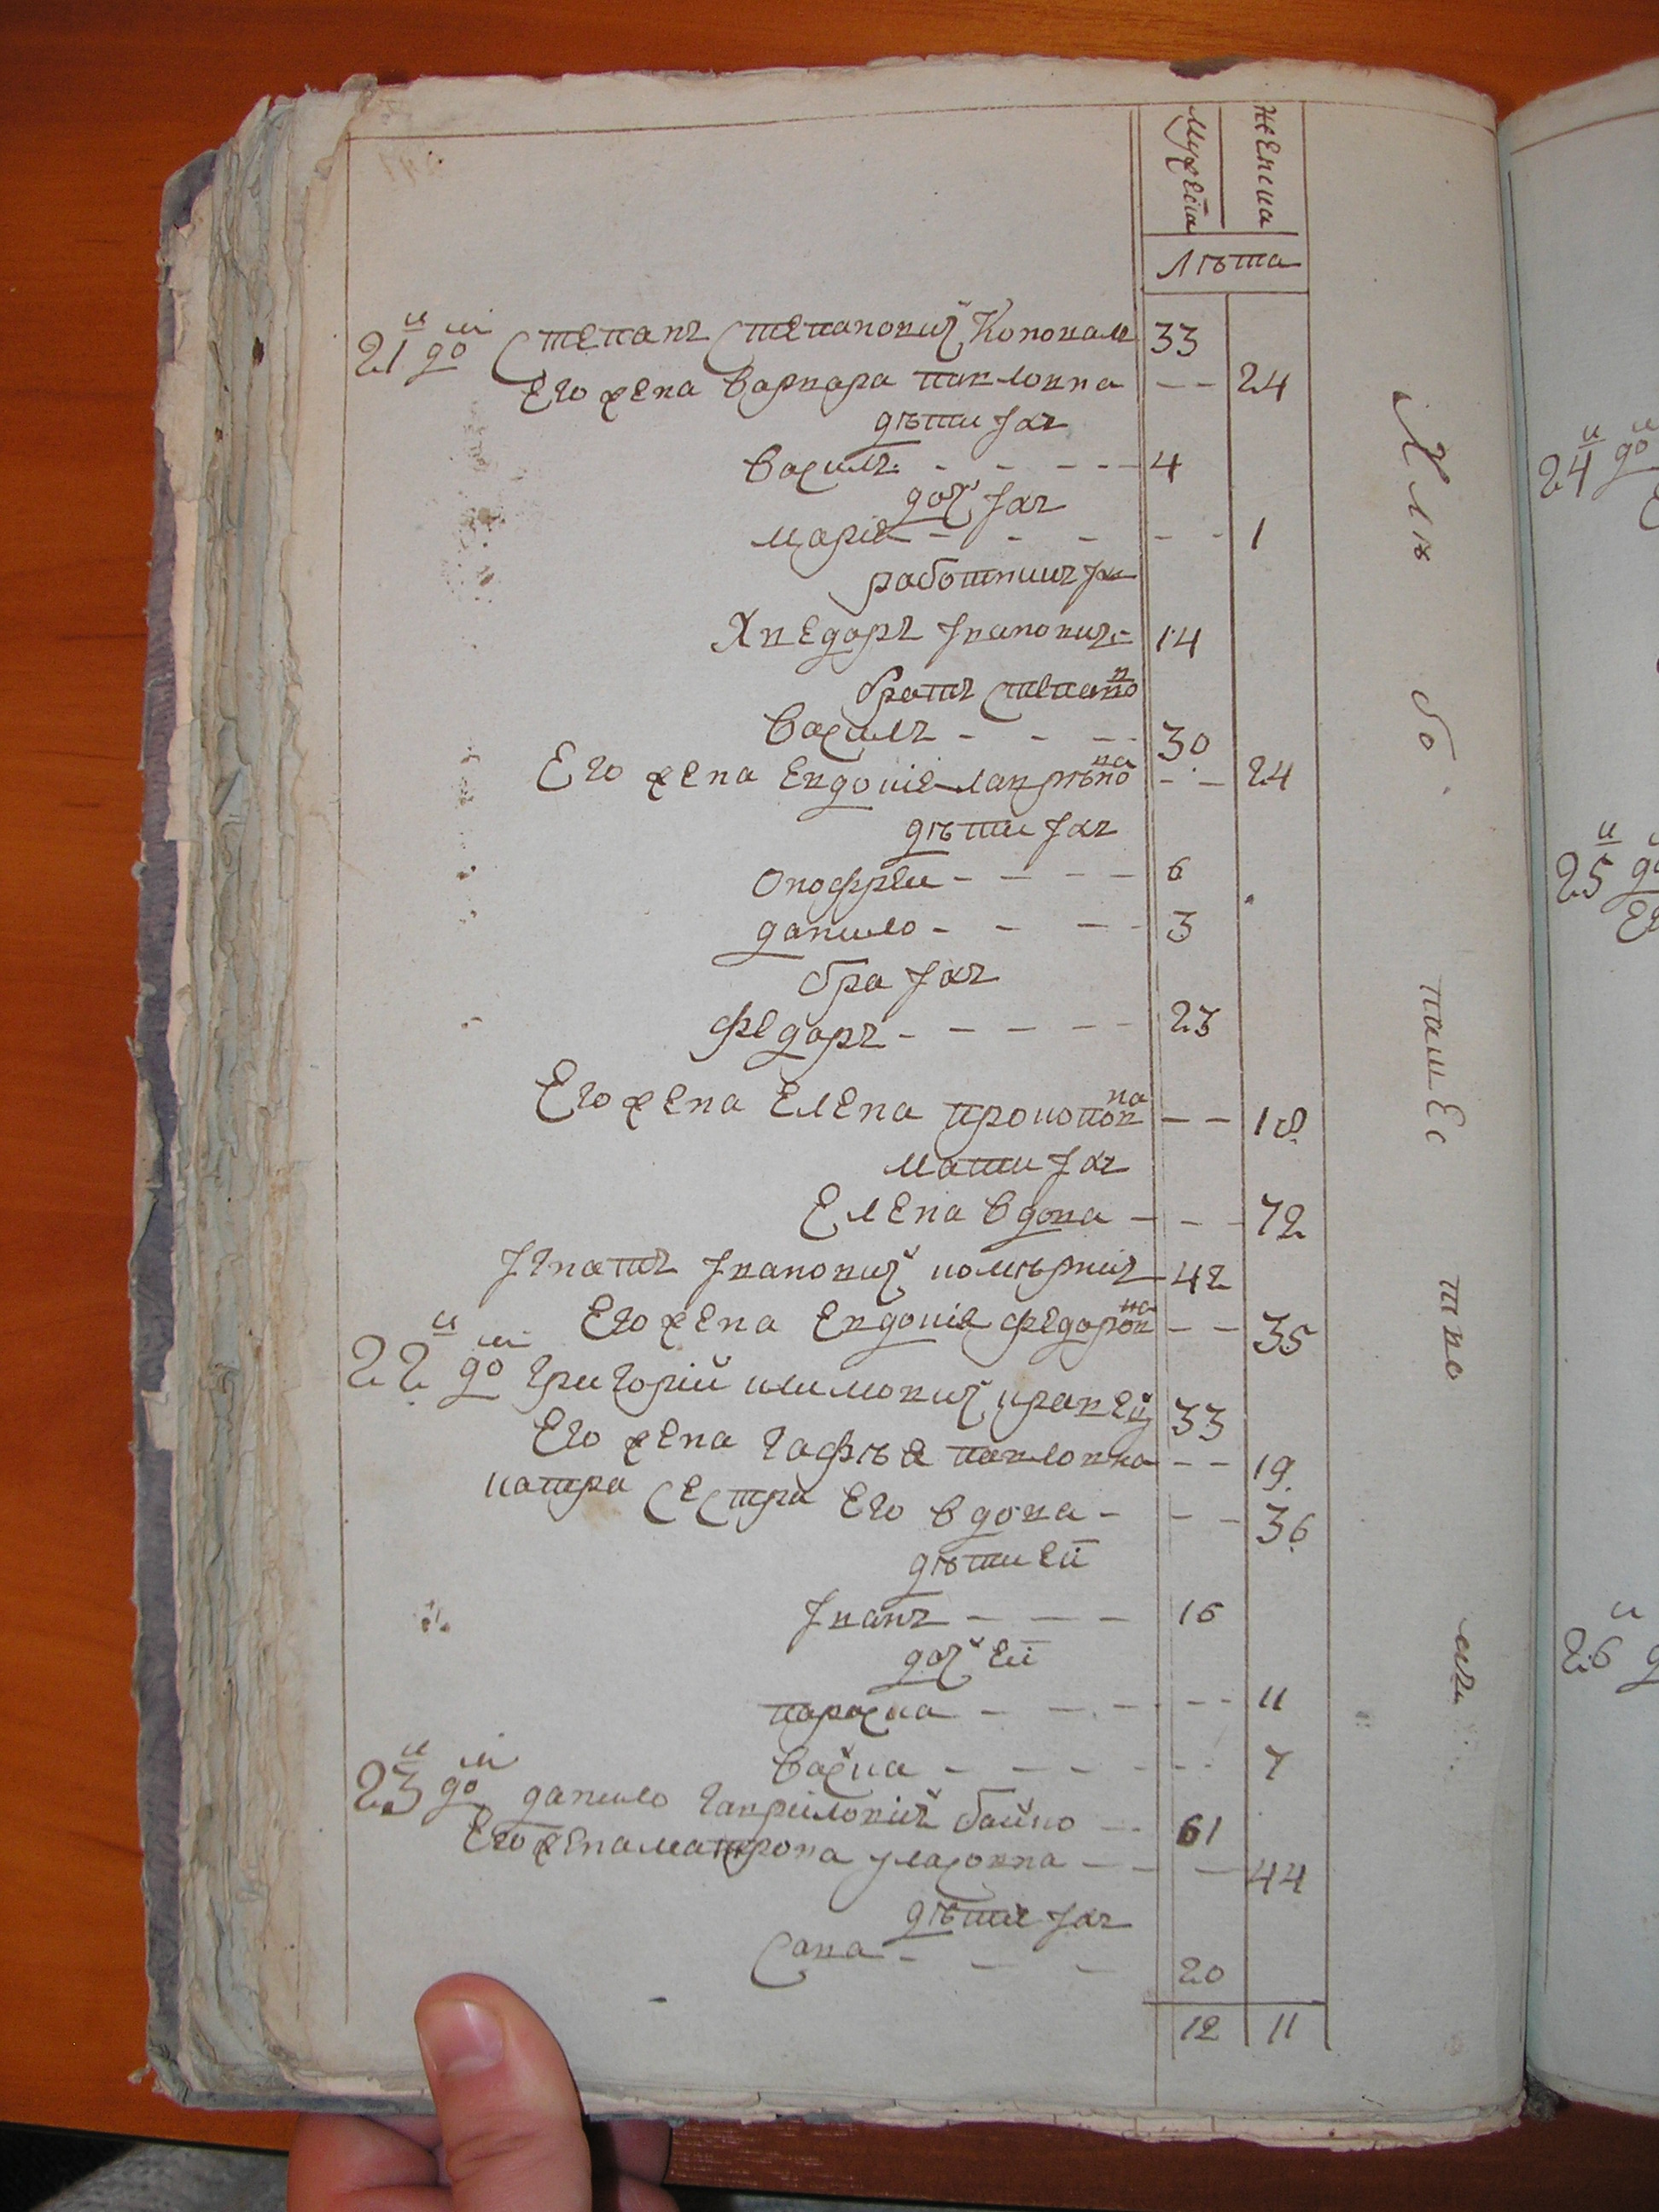 Мужеска
женска
Лѣта
21 й дом Степанъ Степановичъ Коновалъ 33
Его жена Варвара павловна – – 24
дѣти ихъ
Василь – – – – 4
дочъ ихъ
марія – – – – – 1
работникъ их
Хведоръ Ивановичъ – 14
братъ степанов
Василъ – – – 30
Его жена Евдокія лаврѣновна – – 24
дѣти ихъ
Онофрей – – – – 6
данило – – – – 3
бра ихъ
Федоръ – – – – – 23
Его жена Елена прокоповна – – 18
мати ихъ
Елена вдова – – – 72
Игнатъ Ивановичъ 42
Его жена Евдокія федоровна – – 35
22 й дом григорій климовичъ кравец 33
Его жена гафѣя павловна – – 19
сестра Его вдова – – – 36
дѣти еи
Иванъ – – – 16
дочъ еи
параска – – – – – 11
Васка – – – – – – 7
23 й дом данило гавриловичъ бойко – 61
Его жена матрона власовна – – – 44
дѣти ихъ
Сава – – – 20
12 11
Хлѣ бо пашес тво